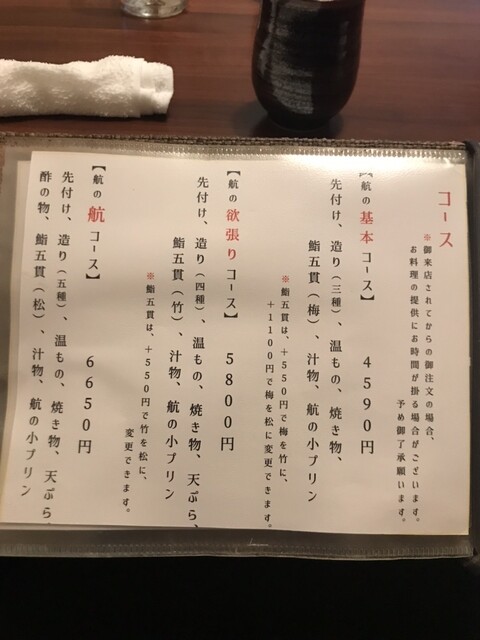 コース
※御来店されてからの御注文の場合、
お料理の提供にお時間が掛る場合がございます。
予め御了承願います。
【航の 基本 コース】 4590円
先付け、造り（三種）、温もの、焼き物、
鮨五貫（梅）、汁物、航の小プリン
※鮨五貫は、＋550円で梅を竹に、
＋1100円で梅を松に変更できます。
【航の 欲張り コース】 5800円
先付け、造り（四種）、温もの、焼き物、天ぷら、
鮨五貫（竹）、汁物、航の小プリン
※鮨五貫は、＋550円で竹を松に、
変更できます。
【航の 航 コース】 6650円
先付け、造り（五種）、温もの、焼き物、天ぷら
酢の物、鮨五貫（松）、汁物、航の小プリン